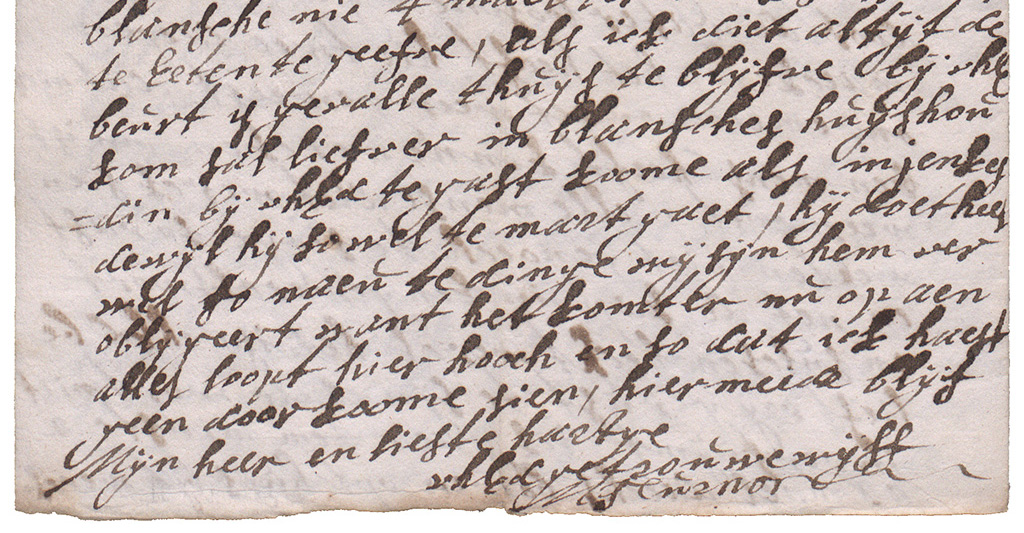 blansche nie 4 mael
te Eeten te geefve, als ick diet altyt de
beurt is gevalle thuys te blyfve by
kom sal liefver in blansches huyshou
=din by te gast koome als in jenkes
dewyl hy so wel te mart gaet, hy doet heel
wel so naeu te dinge wy syn hem ver
obligeert want het komter nu op aen
alles loopt hier hooch en so dat ick haest
geen door koome sien, hier meide blyf
Myn heer en liefste hartye
getrouwe wyff